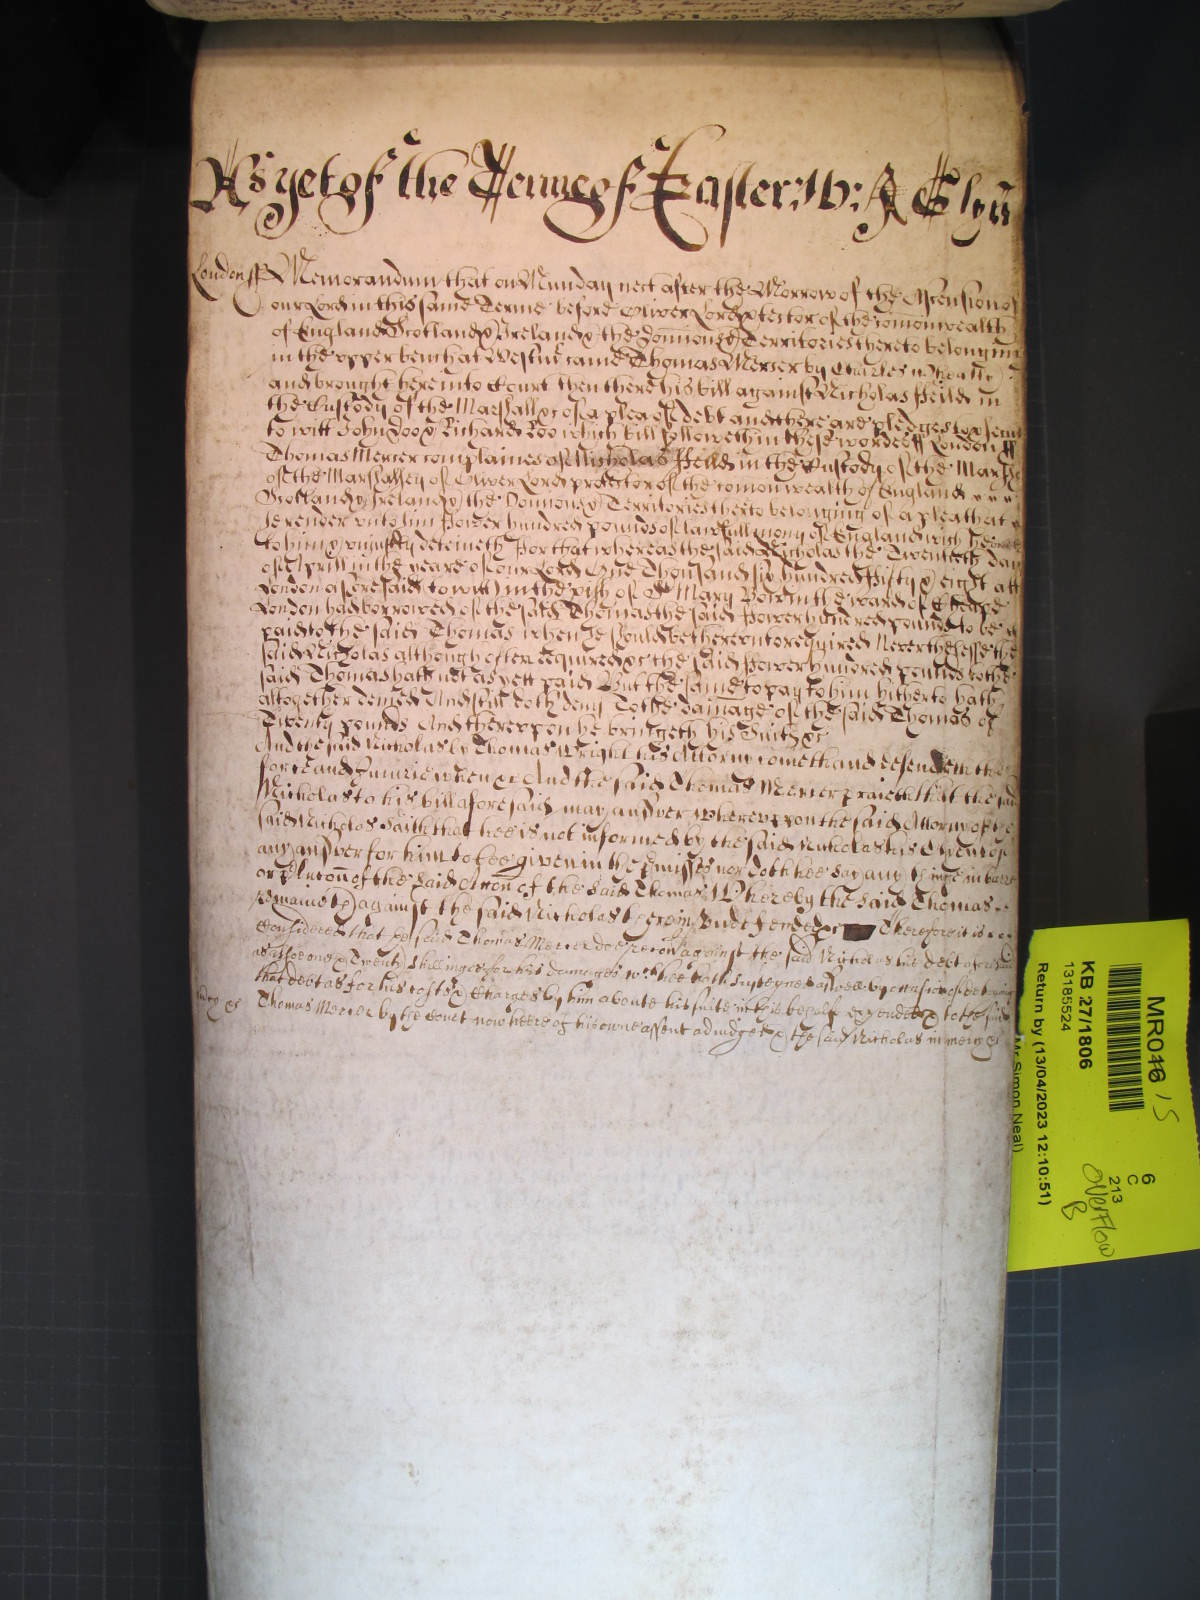 As yet of the Terme of Easter: W: A Glyn
London ss Memorandum that on Munday next after the Morrow of the Ascension of
our Lord in this same Terme before Oliver Lord Protector of the comonwealth
of England Scotland & Ireland & the Dominons & Territories thereto belonging
in the upper bench at Westmr came Thomas Mercer by Charles
and brought here into Court then there his bill against Nicholas Feild in
the Custody of the Marshall &c of a plea of debt and there are pledges to
to witt John Doo & Richard Roo which bill followeth in these wordes ss London ss
Thomas Mercer complaines of Nicholas Feild in the Custody of the Marshall
of the Marshallsey of Oliver Lord protector of the comonwealth of England
Scotland & Ireland & the Domnons & Territories therto belonging of a plea that
he render unto him Fower hundred pounds of lawfull mony of England wch he
to him & unjustly deteineth For that whereas the said Nicholas the Twenteth day
of Aprill in the yeare of our Lord One Thousand six hundred Fifty & eight att
London aforesaid to witt in the pish of St Mary Bow in the ward of Cheape
London had borrowed of the said Thomas the said Fower hundred pounds to be
paid to the said Thomas when he should be thereunto required Neverthelesse the
said Nicholas although often required &c the said Fower hundred pounds to the
said Thomas hath not as yett paid But the same to pay to him hitherto hath
altogether denied And still doth deny To the damage of the said Thomas of
Twenty pounds And thereupon he bringeth his Suith &c
And the said Nicholas by Thomas Wright his Attorny cometh and defendeth the
force and Injurie when &c And the said Thomas Mercer praieth that the said
Nicholas to his bill aforesaid may answer Whereupon the said Attorny of the
said Nicholas saith that hee is not informed by the said Nicholas his Clyent of
any answer for him to bee given in the pmisses nor doth hee say any thinge in barre
or of the said Accon of the said Thomas Whereby the said Thomas
Remaineth against the said Nicholas therein undefended &c Therefore it is
Considered that the said Thomas Mercer doe recover against the said Nicholas his debt aforesaid
as alsoe one & Twenty shillinges for his damages wch hee hath susteyned aswell by occasion of deteyning
that debt as for his costs & Charges by him aboute his suite in this behalfe expended & to the said
Thomas Mercer by the Court now heere of his owne assent adiudged & the said Nicholas in mercy &c
Judgt &c
MR015
6
C
213
Overflow
B
KB 27/1806
13185524
Return by (13/04/2023 12:10:51)
Mr Simon Neal)